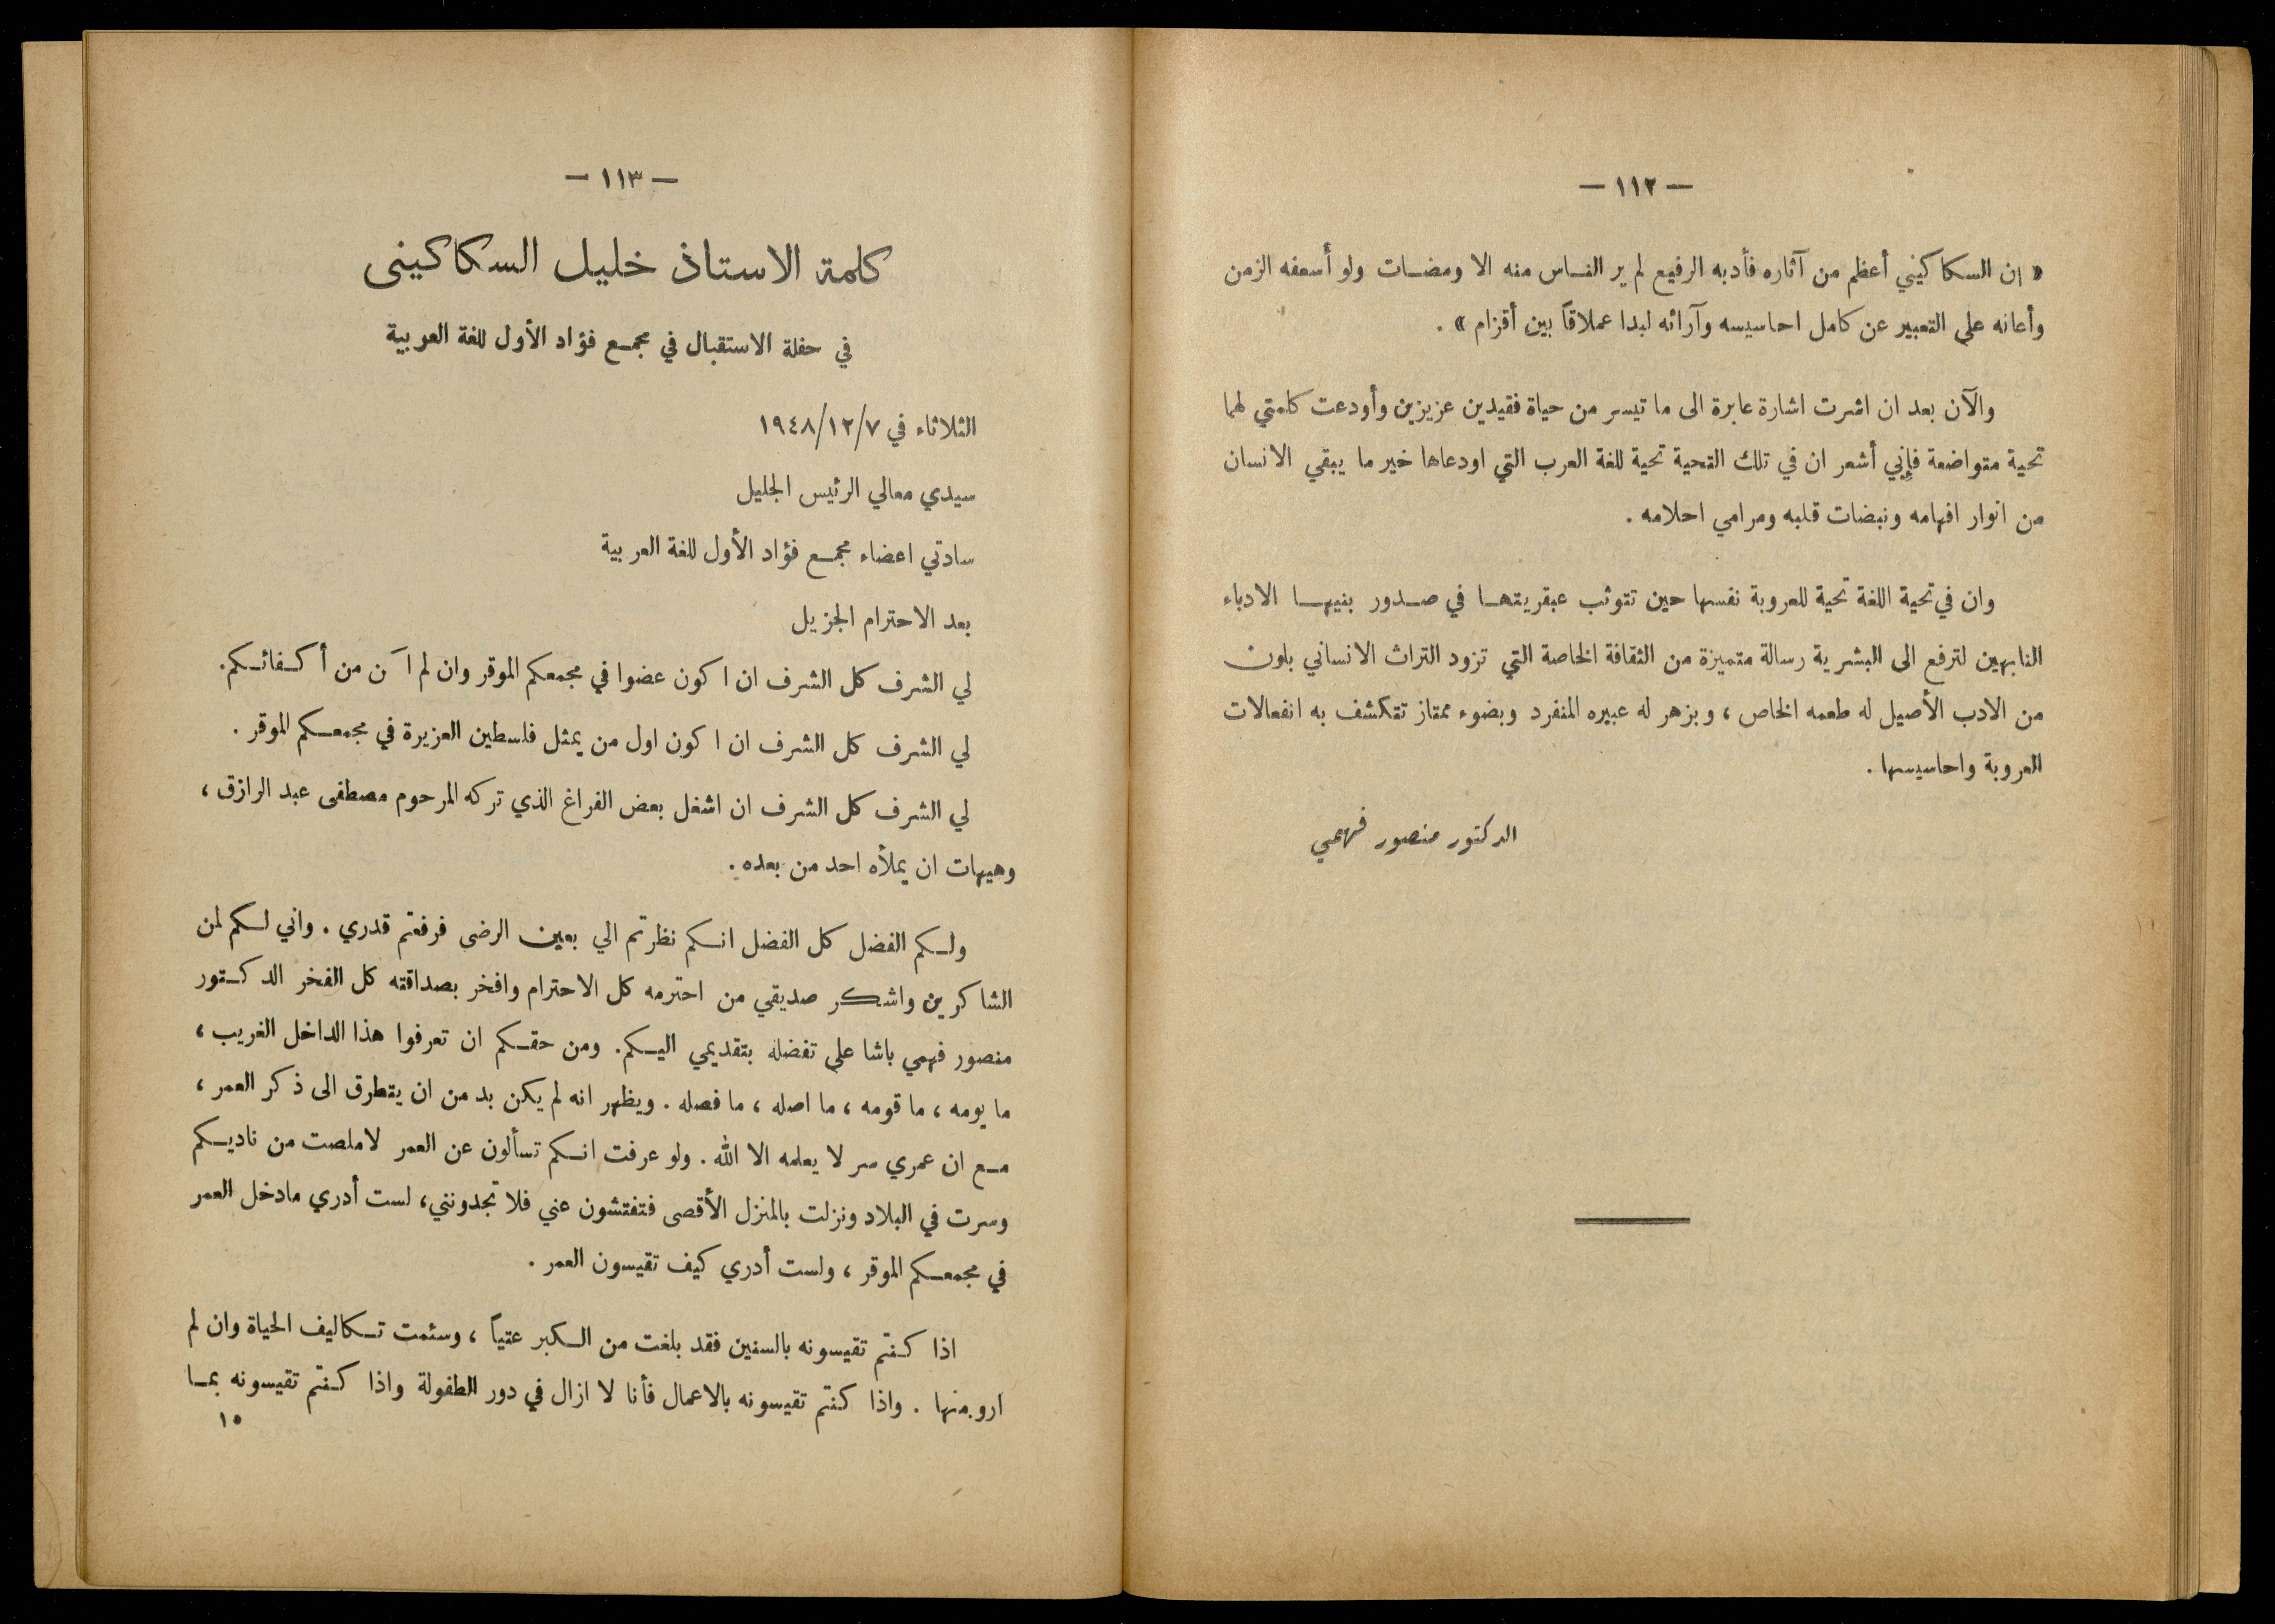 — ١١٢ —
« ان السكاكيني أعظم من آثاره فأدبه الرفيع لم ير الناس منه الا ومضات ولو أسعفه الزمن
وأعانه على التعبير عن كامل احاسيسه وآرائه لبدا عملاقاً بين أقزام » .
والآن بعد ان اشرت اشارة عابرة الى ما تيسر من حياة فقيدين عزيزين وأودعت كلمتي لهما
تحية متواضعة فإني أشعر ان في تلك التحية تحية للغة العرب التي اودعاها خير ما يبقي الانسان
من انوار افهامه ونبضات قلبه ومرامي احلامه .
وان في تحية اللغة تحية للعروبة نفسها حين تتوثب عبقريتها في صدور بنيها الادباء
النابهين لترفع الى البشرية رسالة متميزة من الثقافة الخاصة التي تزود التراث الانساني بلون
من الادب الأصيل له طعمه الخاص ، وبزهر له عبيره المنفرد وبضوء ممتاز تتكشف به انفعالات
العروبة واحاسيسها .
الدكتور منصور فهمي
— ١١٣ —
كلمة الاستاذ خليل السكاكيني
في حفلة الاستقبال في مجمع فؤاد الأول للغة العربية
الثلاثاء في ١٩٤٨/١٢/٧
سيدي معالي الرئيس الجليل
سادتي اعضاء مجمع فؤاد الأول للغة العربية
بعد الاحترام الجزيل
لي الشرف كل الشرف ان اكون عضوا في مجمعكم الموقر وان لم من أكفائكم .
لي الشرف كل الشرف ان اكون اول من يمثل فلسطين العزيزة في مجمعكم الموقر .
لي الشرف كل الشرف ان اشغل بعض الفراغ الذي تركه المرحوم مصطفى عبد الرازق ،
وهيهات ان يملأه احد من بعده .
ولكم الفضل كل الفضل انكم نظرتم الي بعين الرضى فرفعتم قدري . واني لكم لمن
الشاكرين واشكر صديقي من احترمه كل الاحترام وافخر بصداقته كل الفخر الدكتور
منصور فهمي باشا على تفضله بتقديمي اليكم . ومن حقكم ان تعرفوا هذا الداخل الغريب ،
ما يومه ، ما قومه ، ما اصله ، ما فصله . ويظهر انه لم يكن بد من ان يتطرق الى ذكر العمر ،
مع ان عمري سر لا يعلمه الا الله . ولو عرفت انكم تسألون عن العمر لاملصت من ناديكم
وسرت في البلاد ونزلت بالمنزل الأقصى فتفتشون عني فلا تجدونني ، لست أدري مادخل العمر
في مجمعكم الموقر ، ولست أدري كيف تقيسون العمر .
اذا كنتم تقيسونه بالسنين فقد بلغت من الكبر عتياً ، وسئمت تكاليف الحياة وان لم
ارو منها . واذا كنتم تقيسونه بالاعمال فأنا لا ازال في دور الطفولة واذا كنتم تقيسونه بما
١٥